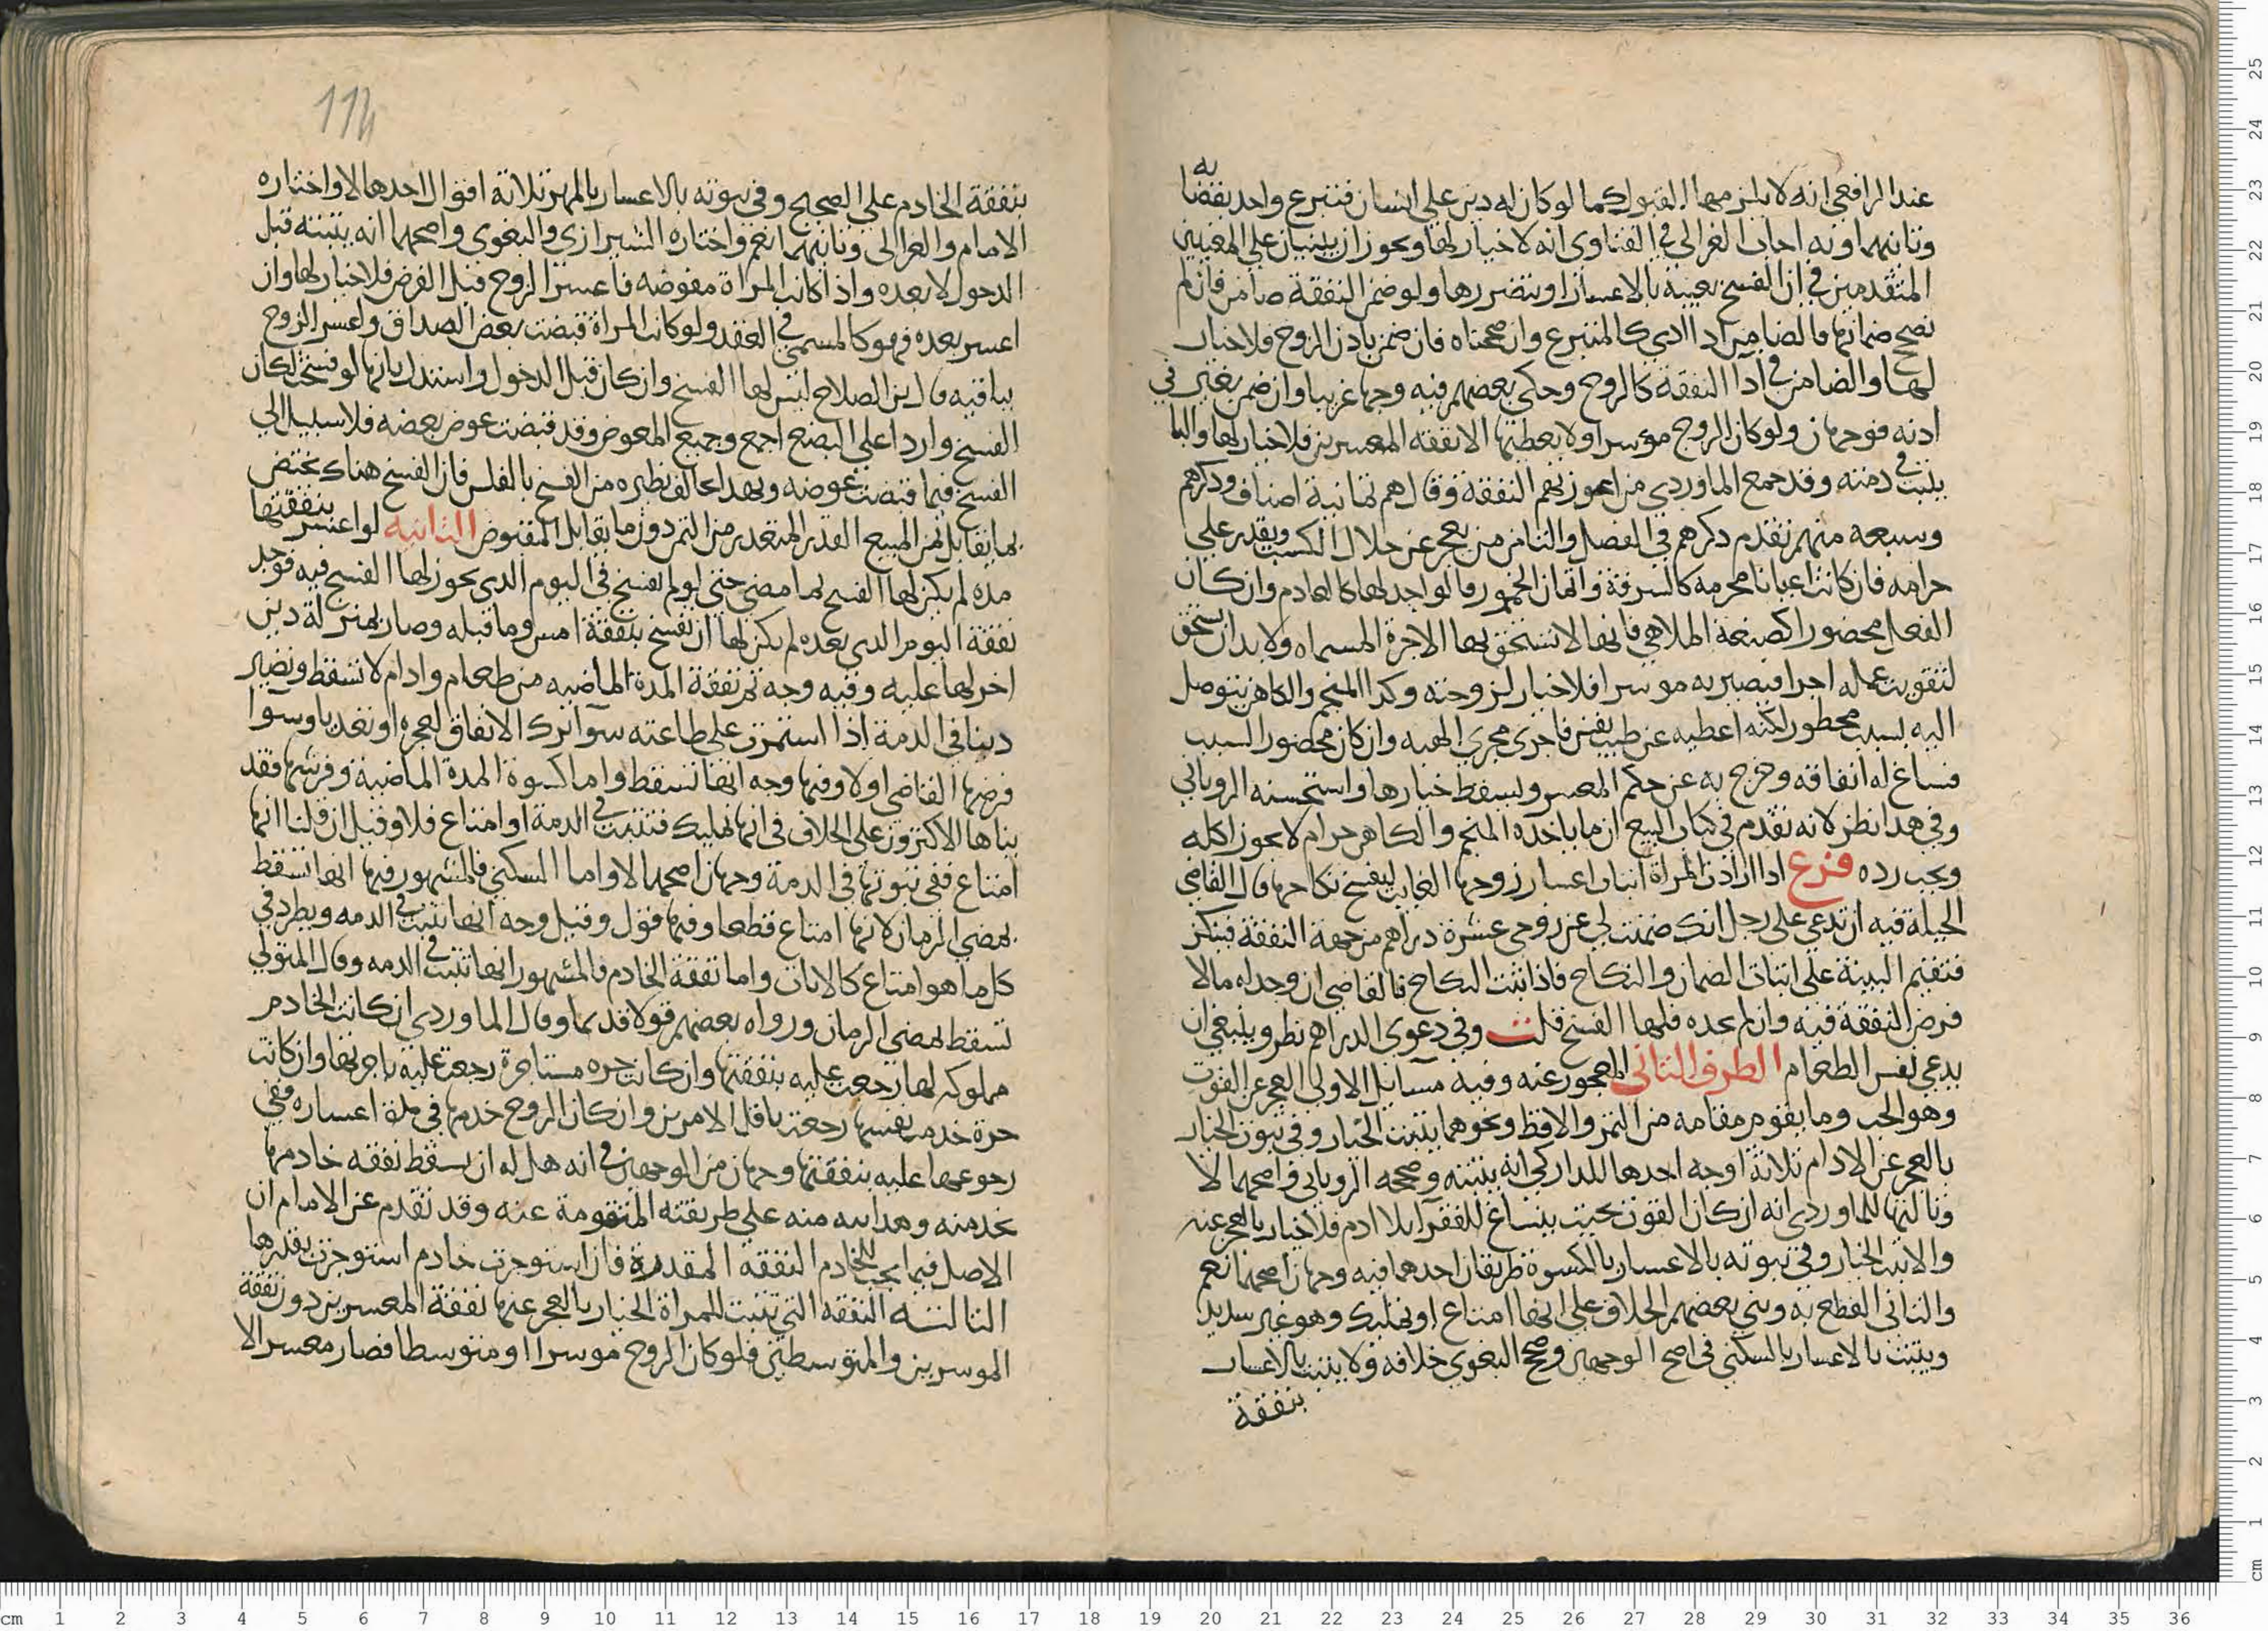 عند الرافعي انه لا يلزمها القبول كما لو كان له دين على انسان فتبرع واحد بقضائه
وثانيهما وبه اجاب الغزالي في الفتاوى انه لا خيار لها ويجوز ان يبنيان على المعنيين
المتقدمين في ان الفسخ بعينه بالاعسار او بتضررها ولو ضمن النفقة ضامن فان لم
نصحح ضمانها فالضامن اذا ادى كالمتبرع وان صححناه فان ضمن باذن الزوج فلا خيار
لها والضامن في ادا النفقة كالزوج وحكى بعضهم فيه وجها غريبا وان ضمن بغير
اذنه فوجهان ولو كان الزوج موسرا ولا يعطيها الا نفقه المعسرين فلا خيار لها والباقي
يثبت في ذمته وقد جمع الماوردي من اعوزتهم النفقة وقال هم ثمانية اصناف وذكرهم
وسبعه منهم تقدم ذكرهم في الفصل والثامن من يعجز عن حلال الكسب ويقدر على
حرامه فان كانت اعيانا محرمه كالسرقة واثمان الخمور فالواجد لها كالعادم وان كان
الفعل محضورا كصنعة الملاهي فانها لا تستحق بها الاجرة المسماه ولا بد ان يستحق
لتفويت عمله اجرا فيصير به موسرا فلا خيار لزوجته وكذا المنجم والكاهن يتوصل
اليه بسبب محظور لكنه اعطيه عن طيب نفس فاجرى مجرى الهبه وان كان محضور السبب
فساغ له انفاقه وخرج به عن حكم المعسر ويسقط خيارها واستحسنه الروياني
وفي هذا نظر لانه تقدم في كتاب البيع ان ما ياخذه المنجم والكاهن حرام لا يجوز اكله
ويجب رده فرع اذا ارادت المراة اثبات اعسار زوجها الغايب ليفسخ نكاحها قال القاضي
الحيلة فيه ان تدعي على رجل انك ضمنت لي عن زوجي عشرة دراهم من جهة النفقة فينكر
فتقيم البينة على اثبات الضمان والنكاح فاذا ثبت النكاح فالقاضي ان وجد له مالا
فرض النفقة فيه وان لم يجده فلها الفسخ قلت وفي دعوى الدراهم نظر وينبغي ان
يدعي نفس الطعام الطرف الثاني المعجوز عنه وفيه مسايل الاولى العجز عن القوت
وهو الحب وما يقوم مقامه من التمر والاقط ونحوهما يثبت الخيار وفي ثبوت الخيار
بالعجز عن الادام ثلاثة اوجه احدها للداركي انه يثبته وصححه الروياني واصحهما لا
وثالثها للماوردي انه ان كان القوت بحيث ينساغ للفقرا بلا ادم فلا خيار بالعجز عنه
والا ثبت الخيار وفي ثبوته بالاعسار بالكسوة طريقان احدهما فيه وجهان اصحهما نعم
والثاني القطع به وبني بعضهم الخلاف على انها امتاع او تمليك وهو غير سديد
ويثبت بالاعسار بالسكنى في اصح الوجهين وصحح البغوي خلافه ولا يثبت بالاعسار
بنفقة
114
بنفقة الخادم على الصحيح وفي ثبوته بالاعسار بالمهر ثلاثة اقوال احدها لا واختاره
الامام والغزالي وثانيهما نعم واختاره الشيرازي والبغوي واصحهما انه يثبته قبل
الدخول لا بعده واذا كانت المراة مفوضه فاعسر الزوج قبل الفرض فلا خيار لها وان
اعسر بعده فهو كالمسمى في العقد ولو كانت المراة قبضت بعض الصداق واعسر الزوج
بباقيه قال ابن الصلاح ليس لها الفسخ وان كان قبل الدخول واستدل بانها لو فسخت لكان
الفسخ واردا على البضع اجمع وجميع المعوض وقد قبضت عوض بعضه فلا سبيل الى
الفسخ فيما قبضت عوضه وبهذا يخالف نظيره من الفسخ بالفلس فان الفسخ هناك يختص
بما يقابل من المبيع القدر المتعذر من الثمن دون ما يقابل المقبوض الثانيه لو اعسر بنفقتها
مده لم يكن لها الفسخ لما مضى حتى لو لم تفسخ في اليوم الذي يجوز لها الفسخ فيه فوجد
نفقة اليوم الذي بعده لم يكن لها ان تفسخ بنفقة امس وما قبله وصار بمنزلة دين
اخر لها عليه وفيه وجه ثم نفقة المدة الماضيه من طعام وادام لا تسقط وتصير
دينا في الذمة اذا استمرت على طاعته سوا ترك الانفاق لعجزه او تعديا وسوا
فرضها القاضي اولا وفيها وجه انها تسقط واما كسوة المدة الماضية وفرشها فقد
بناها الاكثرون على الخلاف في انها تمليك فتثبت في الذمة او امتاع فلا وقيل ان قلنا انها
امتاع ففي ثبوتها في الذمة وجهان اصحهما لا واما السكنى فالمشهور فيها انها تسقط
بمضي الزمان لانها امتاع قطعا وفيها قول وقيل وجه انها تثبت في الذمه ويطرد في
كل ما هو امتاع كالاثاث واما نفقة الخادم فالمشهور انها تثبت في الذمه وقال المتولي
تسقط بمضي الزمان ورواه بعضهم قولا قديما وقال الماوردي ان كانت الخادم
مملوكه لها رجعت عليه بنفقتها وان كانت حره مستاجرة رجعت عليه باجرتها وان كانت
حرة خدمت بنفسها رجعت باقل الامرين وان كان الزوج خدمها في مدة اعساره ففي
رجوعها عليه بنفقتها وجهان من الوجهين في انه هل له ان يسقط نفقه خادمها
بخدمته وهذا منه على طريقته المتقومة عنه وقد تقدم عن الامام ان
الاصل فيما يجب للخادم النفقه المقدرة فان استوجرت خادم استوجرت بقدرها
الثالثه النفقه التي تثبت للمراة الخيار بالعجز عنها نفقة المعسرين دون نفقة
الموسرين والمتوسطين فلو كان الزوج موسرا او متوسطا فصار معسرا لا